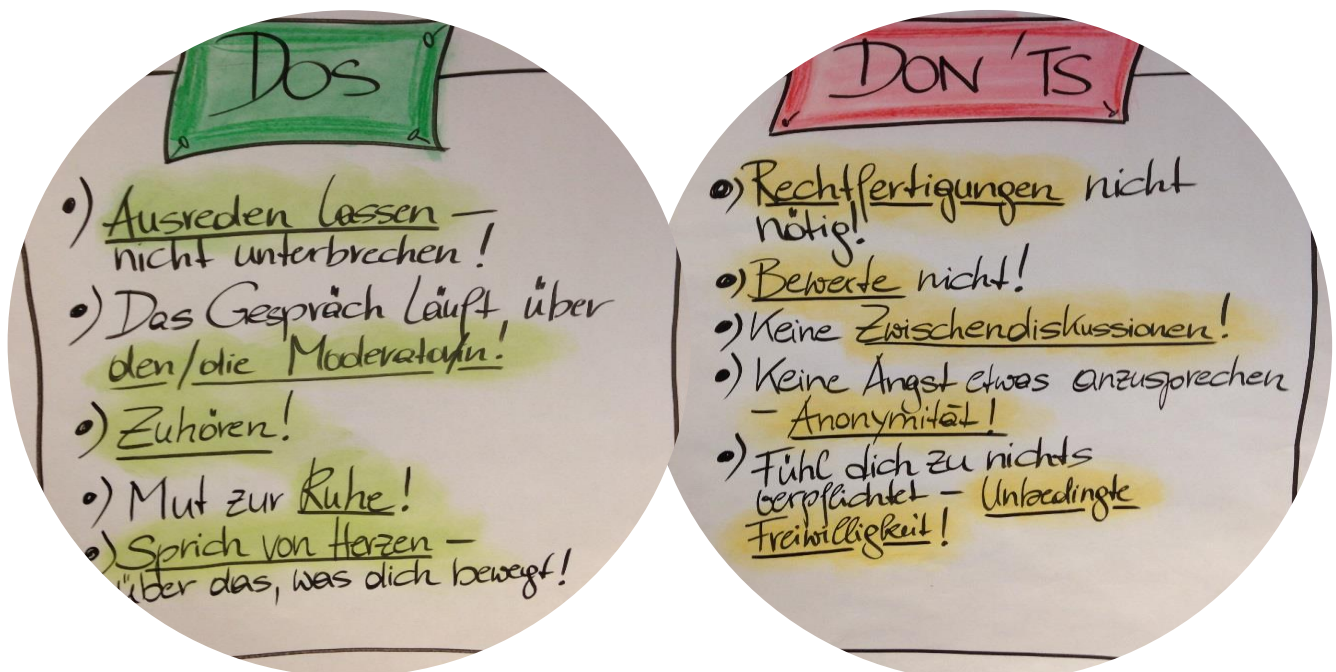 DOS
•) Ausreden lassen –
nicht unterbrechen!
•) Das Gespräch läuft über
den/die Moderator/in!
•) Zuhören!
•) Mut zur Ruhe!
•) Sprich von Herzen –
über das, was dich bewegt!
DON'TS
•) Rechtfertigungen nicht
nötig!
•) Bewerte nicht!
•) Keine Zwischendiskussionen!
•) Keine Angst etwas anzusprechen
– Anonymität!
•) Fühl dich zu nichts
verpflichtet – Unbedingte
Freiwilligkeit!